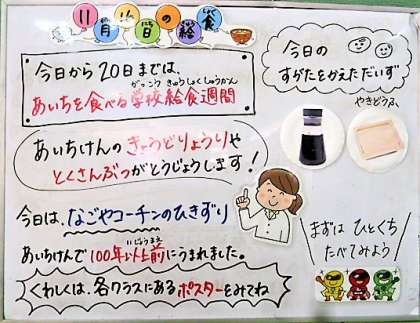 11月11日の給食
今日から20日までは、
がっこう きゅうしょくしゅうかん
あいちを食べる学校給食週間
あいちけんのきょうどりょうりや
とくさんぶつがとうじょうします!
今日は、なごやコーチンのひきずり
いじょうまえ
あいちけんで100年以上前にうまれました。
くわしくは、各クラスにあるポスターをみてね
今日の
すがたをかえただいず
やきどうふ
まずは ひとくち
たべてみよう